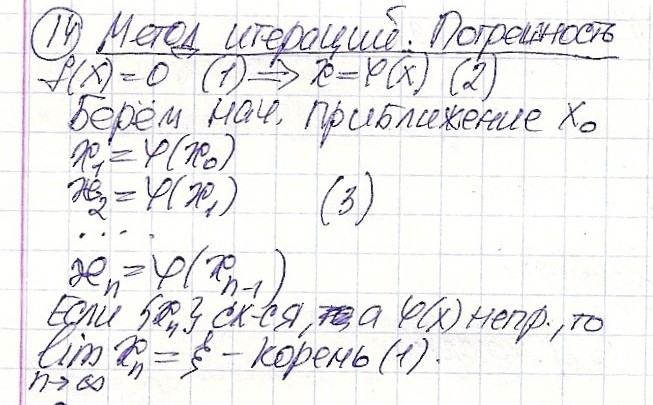 14 Метод итераций. Погрешность
f(x)=0 (1) => x=φ(x) (2)
Берём нач. приближение x₀
x₁=φ(x₀)
x₂=φ(x₁) (3)
. . . .
xₙ=φ(xₙ₋₁)
Если {xₙ} сх-ся, а φ(x) непр., то
lim xₙ = ξ – корень (1).
n→∞